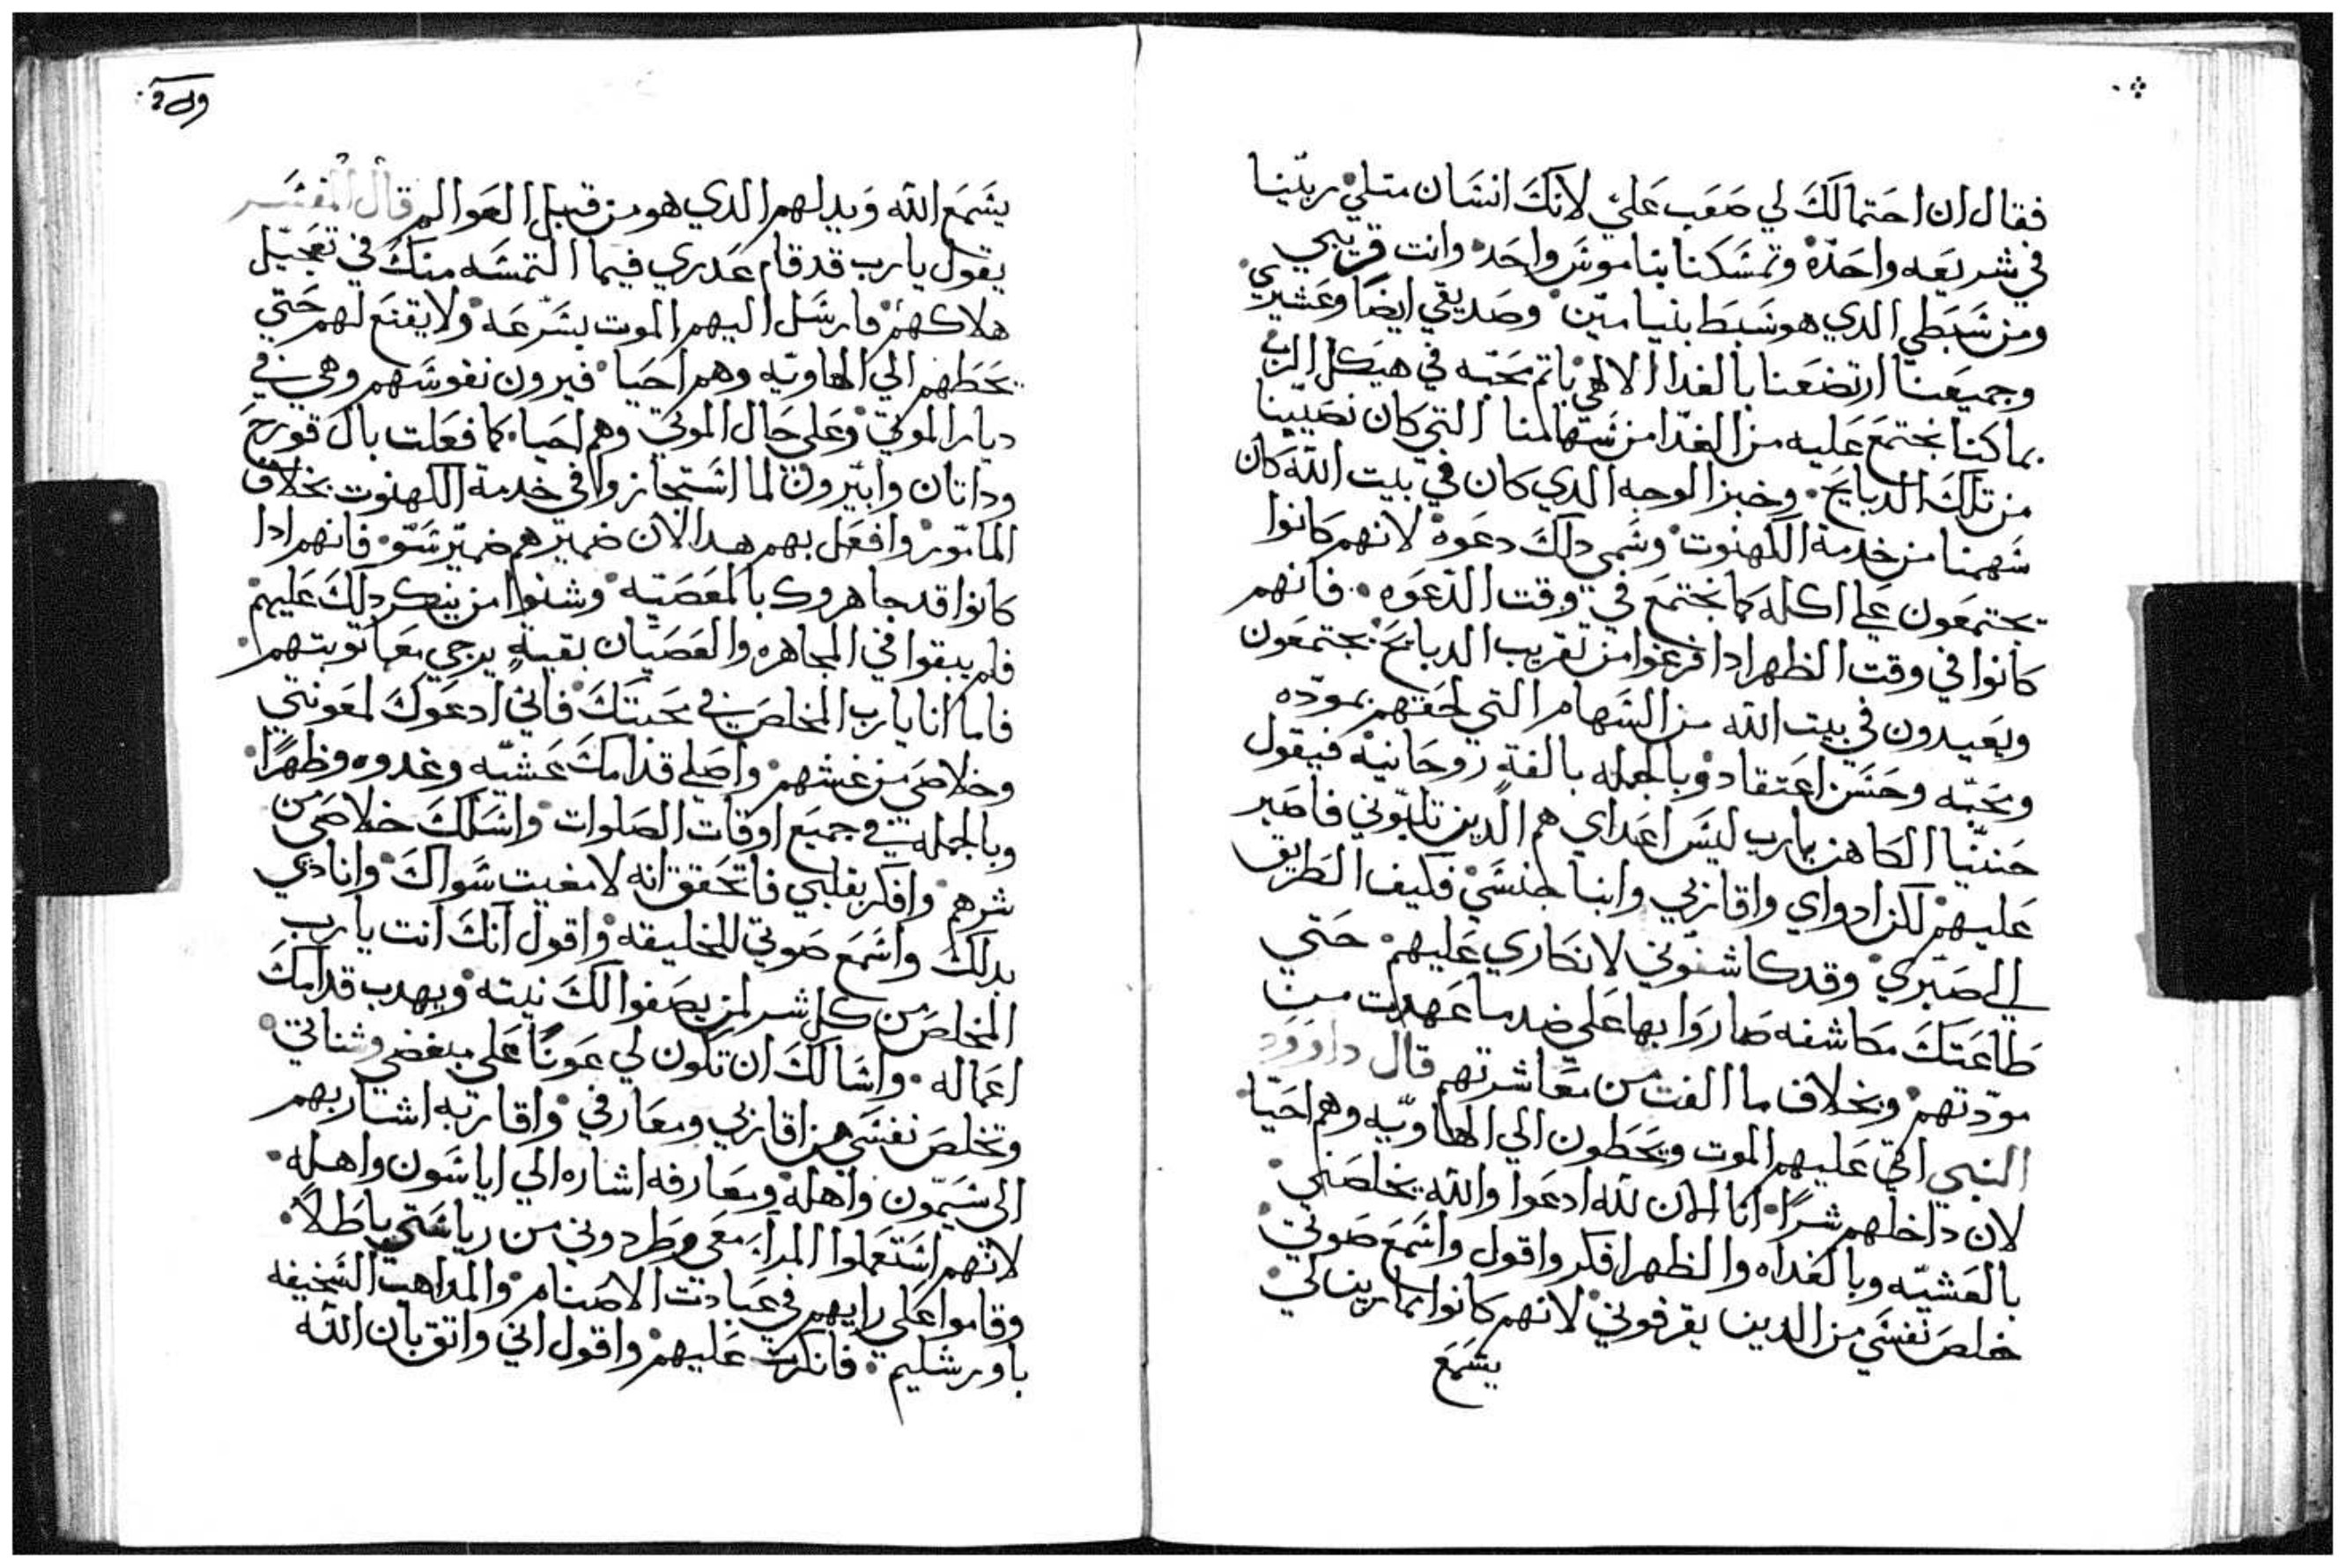 فقال ان احتمالك لي صعب علي لانك انسان متلي ربينا
في شريعه واحده وتمسكنا بناموس واحد وانت قريبي
ومن سبطي الدي هو سبط بنيامين وصديقي ايضا وعشيري
وجميعنا ارتضعنا بالغدا الالهي باتم محبه في هيكل الرب
بما كنا نجتمع عليه من الغدا من سهامنا التي كان نصيبنا
من تلك الدبايح وخبز الوجه الدي كان في بيت الله كان
سهمنا من خدمة الكهنوت وسمي دلك دعوة لانهم كانوا
يجتمعون علي اكله كما يجتمع في وقت الدعوه فانهم
كانوا في وقت الظهر ادا فرغوا من تقريب الدبايح يجتمعون
ويعيدون في بيت الله من السهام التي لحقتهم بموده
ومحبه وحسن اعتقاد وبالجمله بالفة روحانية فيقول
حننيا الكاهن يارب ليس اعداي هم الدين تلبوني فاصبر
عليهم لكن ادواي واقاربي وابنا جنسي فكيف الطريق
الي الصبر وقد كاشفوني لانكاري عليهم حتي
طاعتك مكاشفه صاروا بها علي ضد ما عهدت من
مودتهم وبخلاف ما الفت من معاشرتهم قال داوود
النبي اتي عليهم الموت ويحطون الي الهاويه وهم احيا
لان داخلهم شرا انا الان لله ادعوا والله يخلصني
بالعشيه وبالغداه والظهر افكر واقول واسمع صوتي
خلص نفسي من الدين يقرفوني لانهم كانوا ممارين لي
يسمع
يسمع الله ويدلهم الدي هو من قبل العوالم قال المفسر
يقول يارب قد قام عدري فيما التمسه منك في تعجيل
هلاكهم فارسل اليهم الموت بسرعه ولا يقنع لهم حتي
يحطهم الي الهاويه وهم احيا فيرون نفوسهم وهي في
ديار الموتي وعلي حال الموتي وهم احيا كما فعلت بال قورح
وداتان وابيرون لما استجازوا في خدمة الكهنوت بخلاف
الماتور وافعل بهم هدا لان ضميرهم ضمير سو فانهم ادا
كانوا قد جاهروك بالمعصيه وشنوا من ينكر دلك عليهم
فلم يبقوا في المجاهره والعصيان بقية يرجي معها توبتهم
فاما انا يارب المخلص في محبتك فاني ادعوك لمعونتي
وخلاصي من غشهم واصلي قدامك عشيه وغدوه وظهرا
وبالجمله في جميع اوقات الصلوات واسلك خلاصي من
شرهم وافكر بقلبي فاتحقق انه لا مغيت سواك وانادي
بدلك واسمع صوتي للخليقه واقول انك انت يارب
المخلص من كل شر لمن يصفوا لك نيته ويهدب قدامك
اعماله واسالك ان تكون لي عونا علي مبغضي وشناتي
وتخلص نفسي من اقاربي ومعارفي واقاربه اشتار بهم
الي سيمون واهله ومعارفه اشاره الي اياسون واهله
لانهم استعملوا المرا معي وطردوني من رياستي باطلا
وقاموا علي رايهم في عبادت الاصنام والمداهب السخيفه
باورشليم فانكرت عليهم واقول اني واتق بان الله